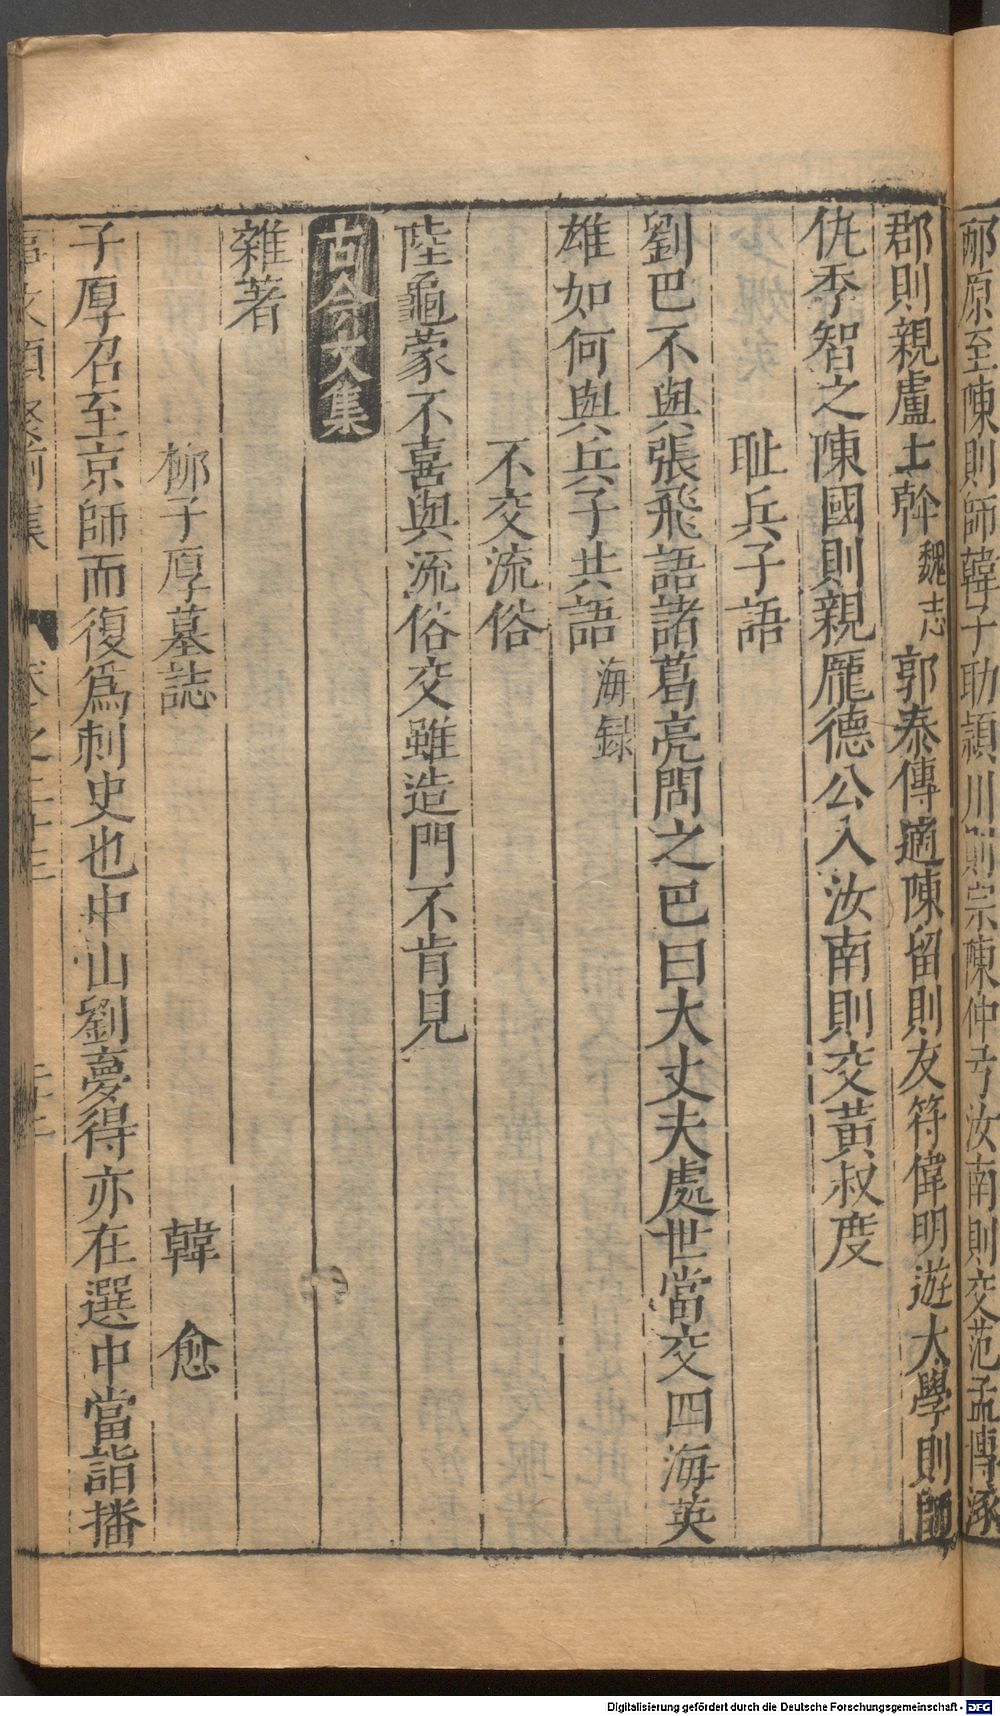 邴原至陳則師韓子助潁川則宗陳仲弓汝南則交范孟博涿
郡則親盧士幹魏志郭泰傳適陳留則友符偉明遊大學則師
仇季智之陳國則親龎德公入汝南則交黃叔度
耻兵子語
劉巴不與張飛語諸葛亮問之巴曰大丈夫處世當交四海英
雄如何與兵子共語海録
不交流俗
陸龜蒙不喜與流俗交雖造門不肯見
古今文集
雜著
柳子厚墓誌 韓愈
子厚召至京師而復爲刺史也中山劉夢得亦在選中當詣播
事文類聚前集 卷之二十三
Digitalisierung gefördert durch die Deutsche Forschungsgemeinschaft - DFG